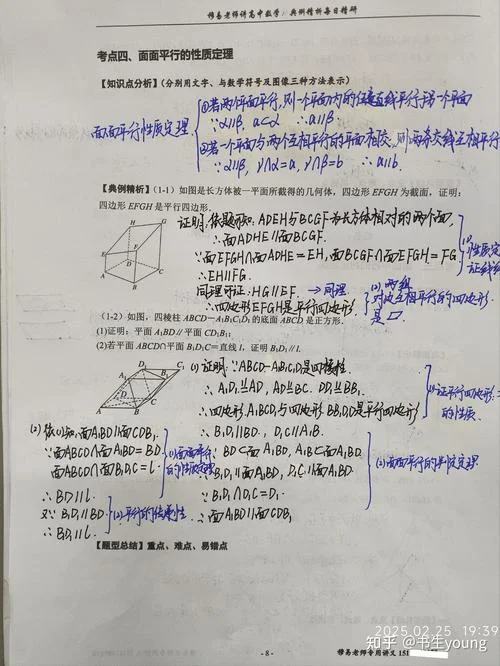 穆易老师讲高中数学：典例精析每日精研
考点四、面面平行的性质定理
【知识点分析】（分别用文字、与数学符号及图像三种方法表示）
面面平行性质定理
①若两个平面平行，则一个平面内的任意直线平行于另一个平面
∵α∥β，a⊂α ∴a∥β
②若一个平面与两个互相平行的平面相交，则两条交线互相平行
∵α∥β，γ∩α=a，γ∩β=b ∴a∥b.
【典例精析】（1-1）如图是长方体被一平面所截得的几何体，四边形 EFGH 为截面，证明：
四边形 EFGH 是平行四边形.
证明：依题可知，ADEH与BCGF为长方体相对的两个面，
∴面ADHE∥面BCGF.
∵面EFGH∩面ADHE=EH，面BCGF∩面EFGH=FG
∴EH∥FG.
同理可证：HG∥EF. → 同理.
∴四边形EFGH是平行四边形
(1)性质定
证线
(2)两组
对边互相平行的四边形
是▱.
（1-2）如图，四棱柱 ABCD－A₁B₁C₁D₁ 的底面 ABCD 是正方形.
(1)证明：平面 A₁BD∥平面 CD₁B₁；
(2)若平面 ABCD∩平面 B₁D₁C=直线 l，证明 B₁D₁∥l.
(1)证明：∵ABCD-A₁B₁C₁D₁是四棱柱
∴A₁D₁≝AD，AD≝BC. DD₁≝BB₁
∴四边形A₁BCD₁与四边形BB₁D₁D是平行四边形
∴B₁D₁∥BD，D₁C∥A₁B.
BD⊂面A₁BD，A₁B⊂面A₁BD
∴B₁D₁∥面A₁BD，D₁C∥面A₁BD
∵B₁D₁∩D₁C=D₁.
∴面A₁BD∥面CDB₁
(1)证平行四边形
的性质.
(2)面面平行的判定定理
(2)依(1)知，面A₁BD∥面CDB₁
∵面ABCD∩面A₁BD=BD
面ABCD∩面B₁D₁C=l
∴BD∥l.
又∵B₁D₁∥BD
∴B₁D₁∥l.
(1)面面平行
的性质定理
(2)平行的传递性
【题型总结】重点、难点、易错点
2025.02.25 19:39
知乎 @书生young
- 8 -
穆易老师专用讲义 151